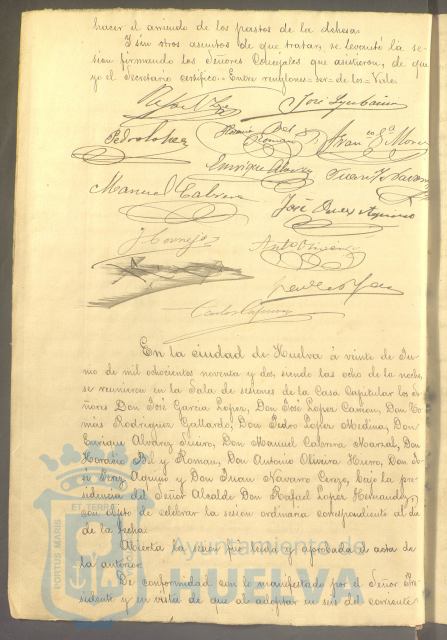 hacer el arriendo de los pastos de la dehesa.
I sin otros asuntos de que tratar, se levantó la se-
sion firmando los Señores Concejales que asistieron, de que
yo el Secretario certifico = Entre renglones = ser = de los = Vale.
Pedro Lopez
Enrique Alvarez
Manuel Cabrera
José Diaz Aquino
J Cornejo
Antº Oliveira
En la ciudad de Huelva á veinte de Ju-
nio de mil ochocientos noventa y dos, siendo las ocho de la noche,
se reunieron en la Sala de sesiones de la Casa Capitular los Se-
ñores Don José Garcia Lopez, Don José Lopez Don To-
más Rodriguez Gallardo, Don Pedro Lopez Medina, Don
Enrique Alvarez Don Manuel Cabrera Don
Horacio Bel y Roman, Don Antonio Oliveira Hierro, Don Jo-
sé Diaz Aquino y Don Juan Navarro bajo la pre-
sidencia del Señor Alcalde Don Rafael Lopez Hernandez,
con objeto de celebrar la sesion ordinaria correspondiente al dia
de la fecha.
Abierta la sesion fué leida y aprobada el acta de
la anterior.
De conformidad con lo manifestado por el Señor Pre-
sidente y en vista de que al adoptar en seis de corriente
PORTUS MARIS
ET TERRAE
Ayuntamiento de
HUELVA